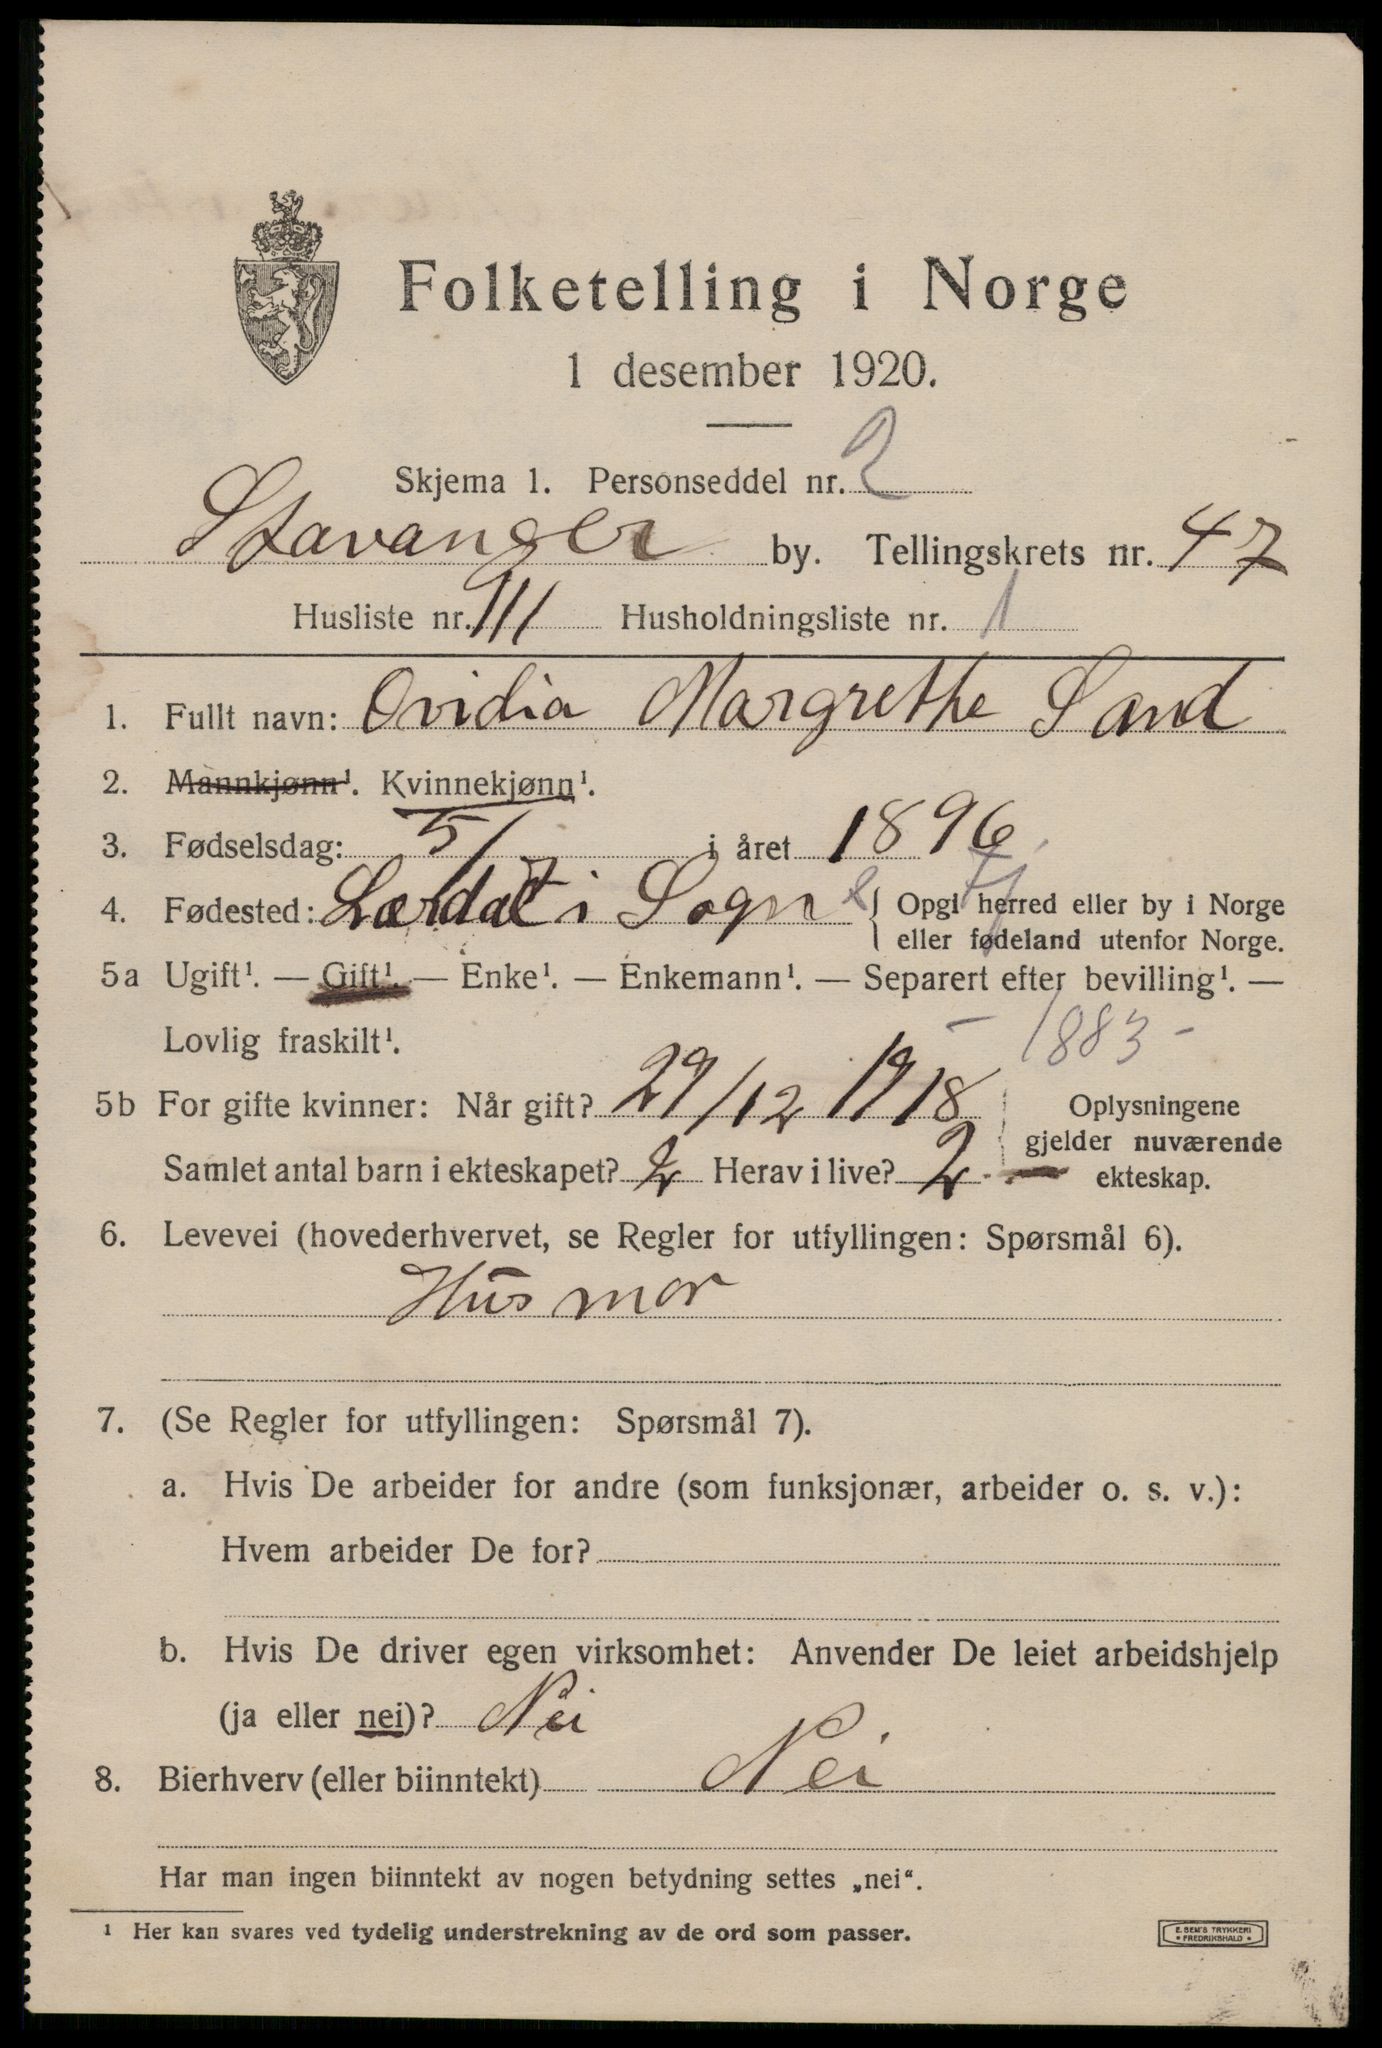 Folketelling i Norge
1 desember 1920.
Skjema 1. Personseddel nr. 2
Stavanger by. Tellingskrets nr. 47
Husliste nr. 111 Husholdningsliste nr. 1
1. Fullt navn: Ovidia Margrethe Sand
2. Mannkjønn¹. Kvinnekjønn¹.
3. Fødselsdag: 5/ i året 1896
4. Fødested: Lærdal i Sogn { Opgi herred eller by i Norge
eller fødeland utenfor Norge.
5a Ugift¹. — Gift¹. — Enke¹. — Enkemann¹. — Separert efter bevilling¹. —
Lovlig fraskilt¹. – 1883 –
5b For gifte kvinner: Når gift? 29/12 1918 Oplysningene
gjelder nuværende
Samlet antal barn i ekteskapet? 2 Herav i live? 2 ekteskap.
6. Levevei (hovederhvervet, se Regler for utfyllingen: Spørsmål 6).
Husmor
7. (Se Regler for utfyllingen: Spørsmål 7).
a. Hvis De arbeider for andre (som funksjonær, arbeider o. s. v.):
Hvem arbeider De for?
b. Hvis De driver egen virksomhet: Anvender De leiet arbeidshjelp
(ja eller nei)? Nei
8. Bierhverv (eller biinntekt) Nei
Har man ingen biinntekt av nogen betydning settes „nei“.
¹ Her kan svares ved tydelig understrekning av de ord som passer.
E. SEM'S TRYKKERI
• FREDRIKSHALD •